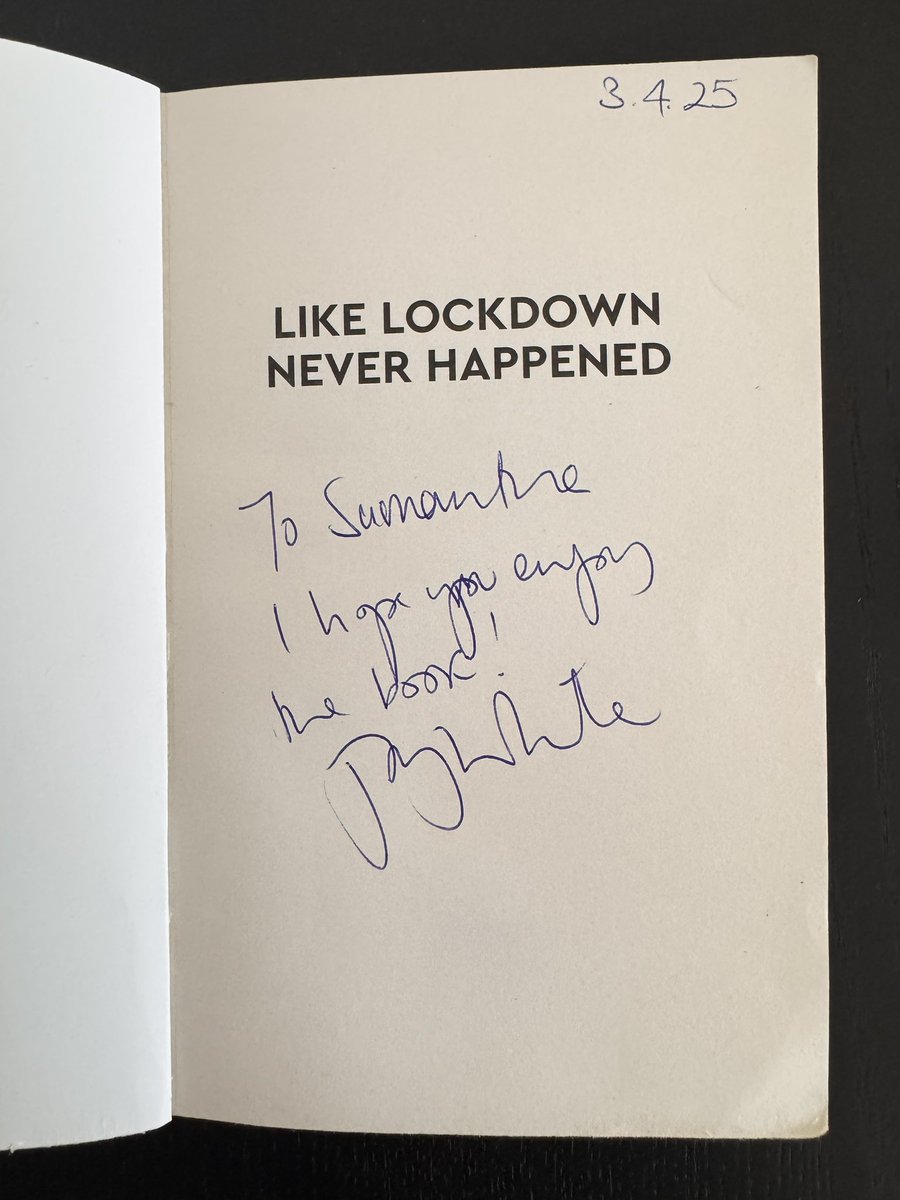 3.4.25
LIKE LOCKDOWN
NEVER HAPPENED
To Samantha
I hope you enjoy
the book!
Joy White